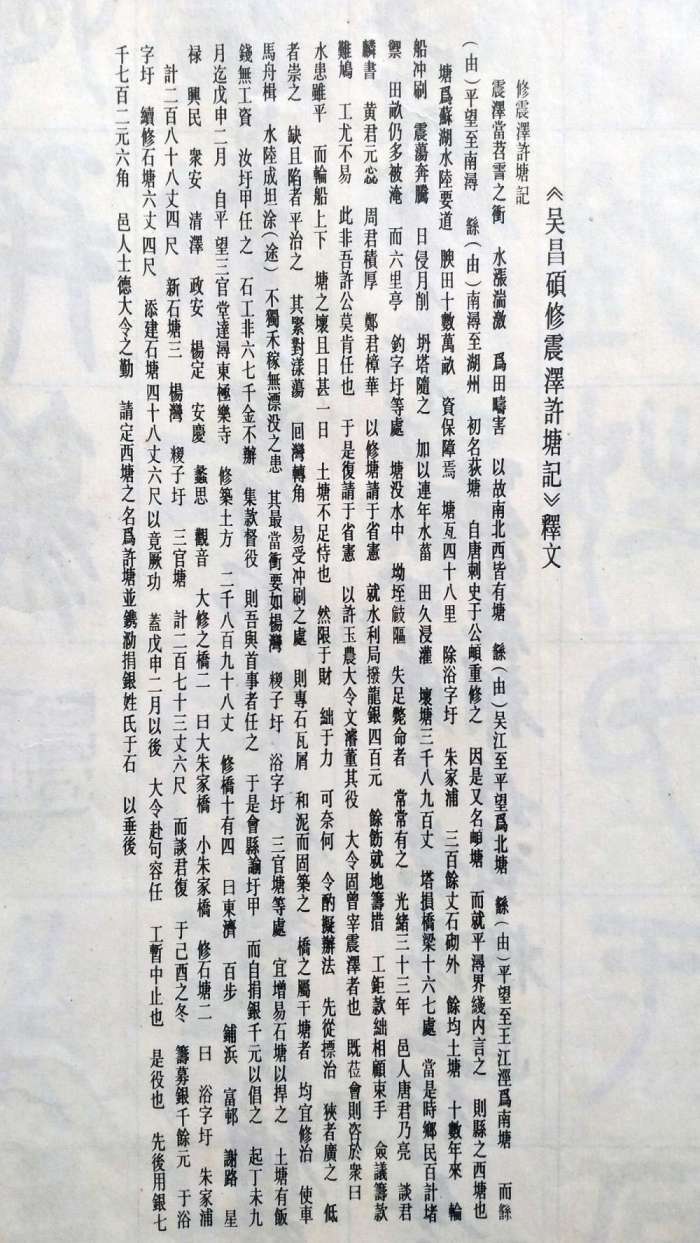 《吴昌碩修震澤許塘記》釋文
修震澤許塘記
震澤當苕霅之衝 水漲湍激 爲田疇害 以故南北西皆有塘 繇(由)吴江至平望爲北塘 繇(由)平望至王江涇爲南塘 而繇
(由)平望至南潯 繇(由)南潯至湖州 初名荻塘 自唐刺史于公頔重修之 因是又名頔塘 而就平潯界綫内言之 則縣之西塘也
塘爲蘇湖水陸要道 腴田十數萬畝 資保障焉 塘亙四十八里 除浴字圩 朱家浦 三百餘丈石砌外 餘均土塘 十數年來 輪
船冲刷 震蕩奔騰 日侵月削 坍塔隨之 加以連年水菑 田久浸灌 壞塘三千八九百丈 塔損橋梁十六七處 當是時鄉民百計堵
禦 田畝仍多被淹 而六里亭 釣字圩等處 塘没水中 坳垤㪣䧢 失足斃命者 常常有之 光緒三十三年 邑人唐君乃亮 談君
麟書 黄君元蕊 周君積厚 鄭君樟華 以修塘請于省憲 就水利局撥龍銀四百元 餘飭就地籌措 工鉅款絀相顧束手 僉議籌款
難鳩 工尤不易 此非吾許公莫肯任也 于是復請于省憲 以許玉農大令文濬董其役 大令固曾宰震澤者也 既莅會則咨於衆曰
水患雖平 而輪船上下 塘之壞且日甚一日 土塘不足恃也 然限于財 絀于力 可奈何 令酌擬辦法 先從摽治 狹者廣之 低
者崇之 缺且陷者平治之 其緊對漾蕩 回灣轉角 易受冲刷之處 則專石瓦屑 和泥而固築之 橋之屬干塘者 均宜修治 使車
馬舟楫 水陸成坦涂(途) 不獨禾稼無漂没之患 其最當衝要如楊灣 稷子圩 浴字圩 三官塘等處 宜增易石塘以捍之 土塘有飯
錢無工資 汝圩甲任之 石工非六七千金不辦 集款督役 則吾與首事者任之 于是會縣諭圩甲 而自捐銀千元以倡之 起丁未九
月迄戊申二月 自平望三官堂達潯東極樂寺 修築土方 二千八百九十八丈 修橋十有四 曰東濟 百步 鋪浜 富邨 謝路 星
禄 興民 衆安 清澤 政安 楊定 安慶 蠡思 觀音 大修之橋二 曰大朱家橋 小朱家橋 修石塘二 曰 浴字圩 朱家浦
計二百八十八丈四尺 新石塘三 楊灣 稷子圩 三官塘 計二百七十三丈六尺 而談君復 于己酉之冬 籌募銀千餘元 于浴
字圩 續修石塘六丈四尺 添建石塘四十八丈六尺以竟厥功 蓋戊申二月以後 大令赴句容任 工暫中止也 是役也 先後用銀七
千七百二元六角 邑人士德大令之勤 請定西塘之名爲許塘並鐫泐捐銀姓氏于石 以垂後